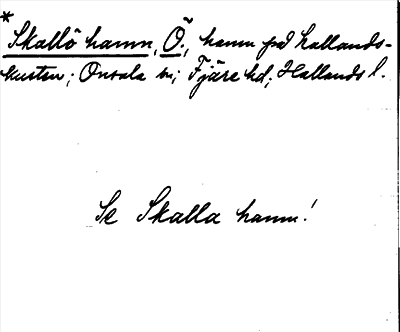 *
Skallö hamn, Ö., hamn på Hallands-
kusten; Onsala sn; Fjäre hd; Hallands l.
Se Skalla hamn!